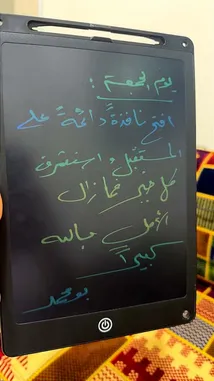 يوم الجمعة :
افتح نافذةً دائمةً على
المستقبل واستشرف
كل خير فمازال
الأمل بالله
كبيراً